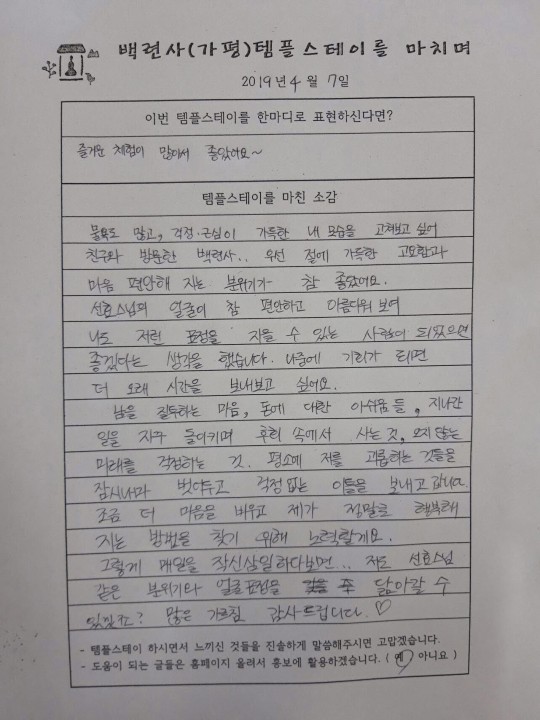 백련사(가평)템플스테이를 마치며
2019년 4월 7일
이번 템플스테이를 한마디로 표현하신다면?
즐거운 체험이 많아서 좋았어요~
템플스테이를 마친 소감
물욕도 많고, 걱정·근심이 가득한 내 모습을 고쳐보고 싶어
친구와 방문한 백련사.. 우선 절에 가득한 고요함과
마음 편안해 지는 분위기가 참 좋았어요.
선효스님의 얼굴이 참 편안하고 아름다워 보여
나도 저런 표정을 지을 수 있는 사람이 되었으면
좋겠다는 생각을 했습니다. 나중에 기회가 되면
더 오래 시간을 보내보고 싶어요.
남을 질투하는 마음, 돈에 대한 아쉬움들, 지나간
일을 자꾸 돌이키며 후회 속에서 사는 것, 오지 않는
미래를 걱정하는 것. 평소에 저를 괴롭히는 것들을
잠시나마 벗어두고 걱정 없는 이틀을 보내고 갑니다.
조금 더 마음을 비우고 제가 정말로 행복해
지는 방법을 찾기 위해 노력할게요.
그렇게 매일을 작심삼일하다보면... 저도 선효스님
같은 분위기와 얼굴표정을 닮아갈 수
있겠죠? 많은 가르침 감사드립니다. ♡
- 템플스테이 하시면서 느끼신 것들을 진솔하게 말씀해주시면 고맙겠습니다.
- 도움이 되는 글들은 홈페이지 올려서 홍보에 활용하겠습니다. ( 예 아니요 )